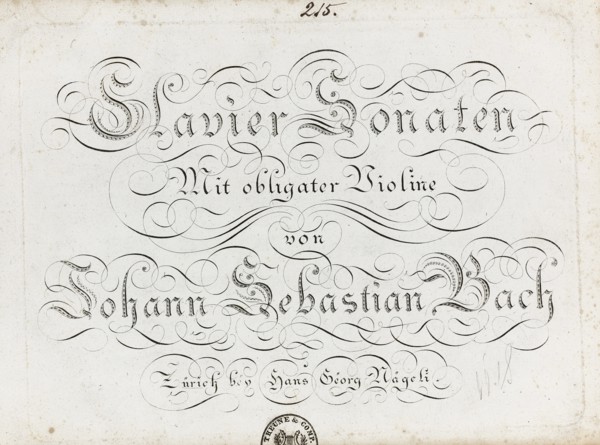 215.
Clavier Sonaten
Mit obligater Violine
von
Johann Sebastian Bach
Zürich bey Hans Georg Nägeli.
TREUNE & COMP.